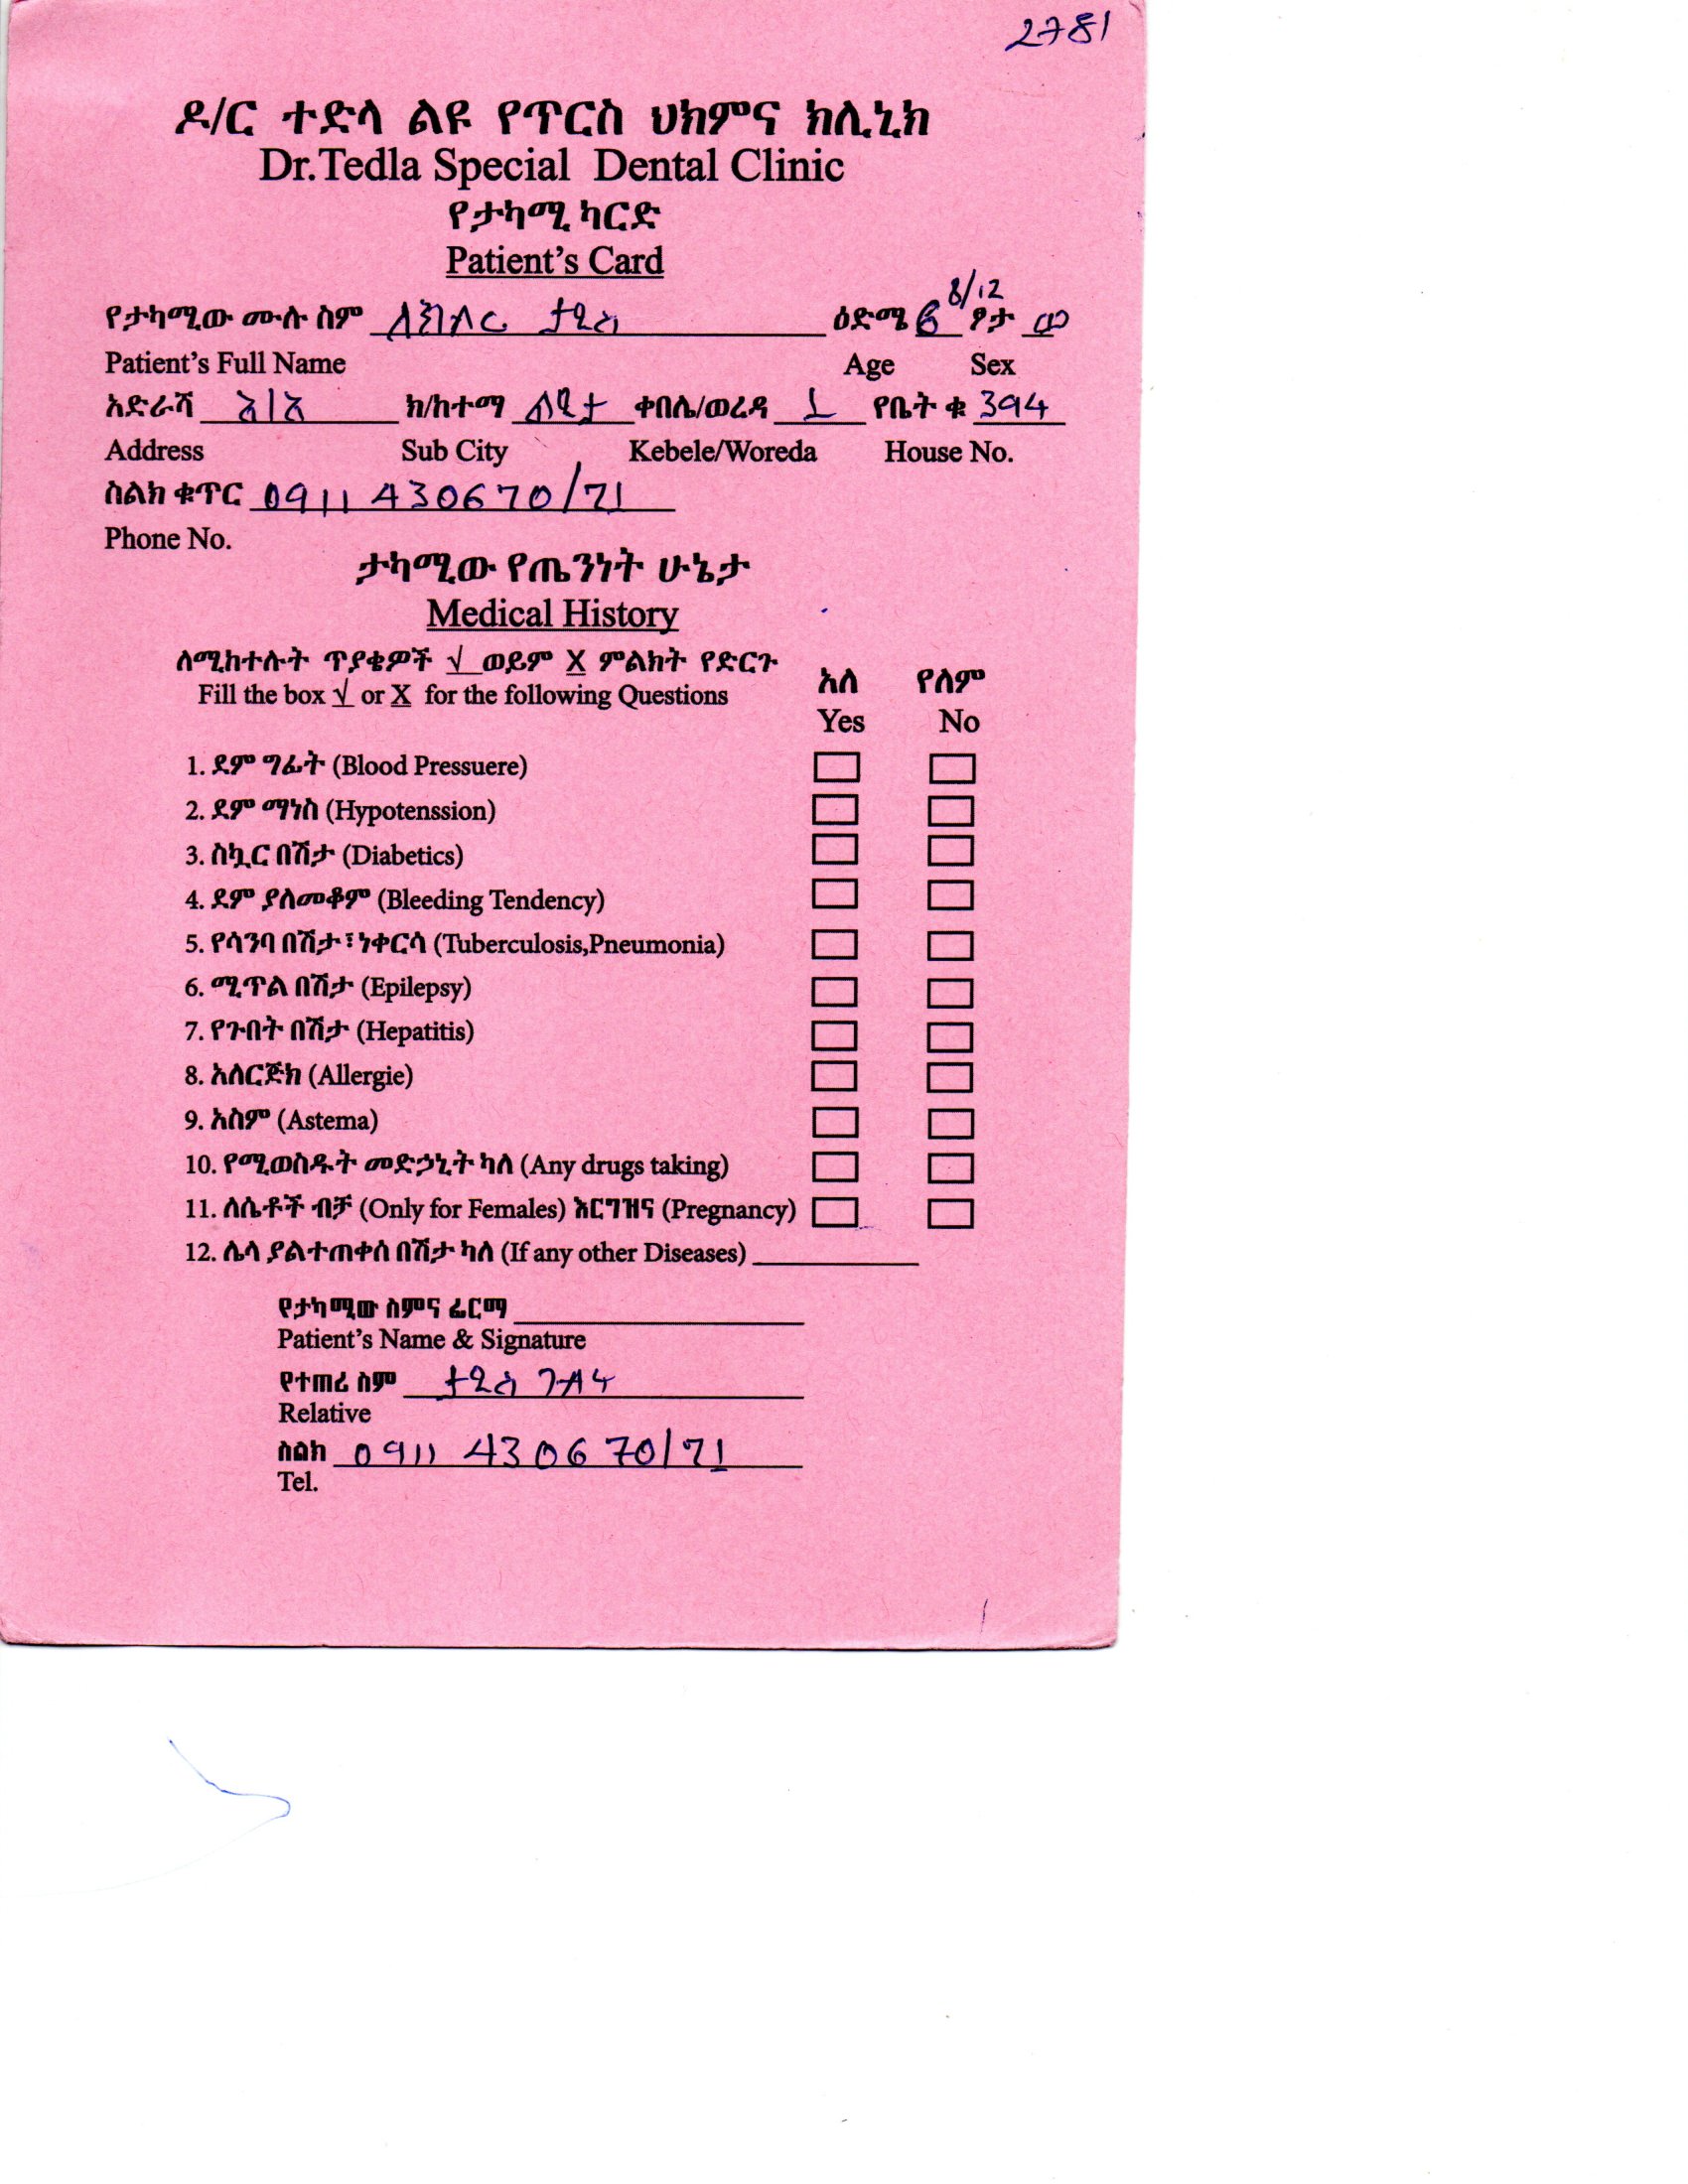 2781
ዶ/ር ተድላ ልዩ የጥርስ ህክምና ክሊኒክ
Dr.Tedla Special Dental Clinic
የታካሚ ካርድ
Patient's Card
የታካሚው ሙሉ ስም ዕድሜ 6 8/12 ፆታ ወ
Patient's Full Name Age Sex
አድራሻ አ/አ ክ/ከተማ ልደታ ቀበሌ/ወረዳ 1 የቤት ቁ 394
Address Sub City Kebele/Woreda House No.
ስልክ ቁጥር 0911 430670/71
Phone No.
ታካሚው የጤንነት ሁኔታ
Medical History
ለሚከተሉት ጥያቄዎች √ ወይም X ምልክት የድርጉ አለ የለም
Fill the box √ or X for the following Questions Yes No
1. ደም ግፊት (Blood Pressuere)
2. ደም ማነስ (Hypotenssion)
3. ስኳር በሽታ (Diabetics)
4. ደም ያለመቆም (Bleeding Tendency)
5. የሳንባ በሽታ፣ ነቀርሳ (Tuberculosis,Pneumonia)
6. ሚጥል በሽታ (Epilepsy)
7. የጉበት በሽታ (Hepatitis)
8. አለርጅክ (Allergie)
9. አስም (Astema)
10. የሚወስዱት መድኃኒት ካለ (Any drugs taking)
11. ለሴቶች ብቻ (Only for Females) እርግዝና (Pregnancy)
12. ሌላ ያልተጠቀሰ በሽታ ካለ (If any other Diseases)
የታካሚው ስምና ፊርማ
Patient's Name & Signature
የተጠሪ ስም
Relative
ስልክ 0911 430670/71
Tel.